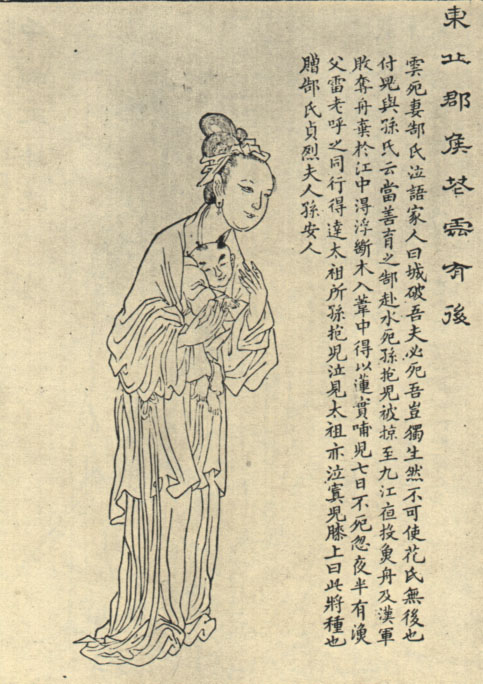 東丘郡矦花雲有後
雲死妻郜氏泣語家人曰城破吾夫必死吾豈獨生然不可使花氏無後也
付兒與孫氏云當善育之郜赴水死孫抱兒被掠至九江亱投魚舟及漢軍
敗奪舟棄於江中得浮斷木入葦中得以蓮實哺兒七日不死忽夜半有漁
父雷老呼之同行得達太祖所孫抱兒泣見太祖亦泣寘兒膝上曰此將種也
贈郜氏貞烈夫人孫安人